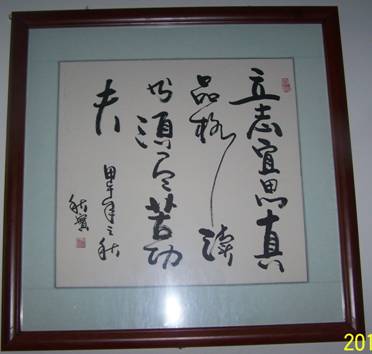 立志宜思真
品格读
书须尽苦功
夫
甲午年之秋
201